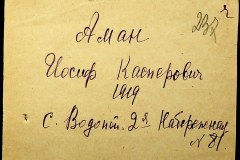 237
Аман
Иосиф Касперович
1919
с. Водопой. 2я Набережная
№ 81.